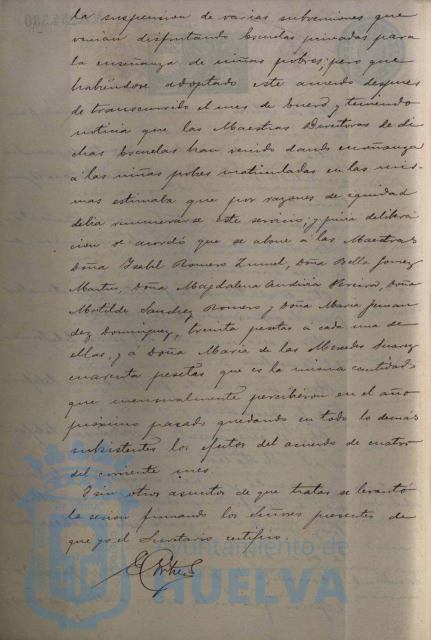 la suspension de varias subvenciones que
venian disfrutando Escuelas privadas para
la enseñanza de niñas pobres; pero que
habiéndose adoptado este acuerdo despues
de transcurrido el mes de Enero, y teniendo
noticia que las Maestras Directoras de di
chas Escuelas han venido dando enseñanza
á las niñas pobres matriculadas en las mis-
mas estimaba que por razones de equidad
debia remunerarse este servicio; y previa delibera
cion se acordó que se abone á las Maestras
Doña Isabel Romero, Doña Bella Gomez
Martin, Doña Magdalena, Doña
Matilde Sanchez Romero y Doña Maria Fernan
dez Dominguez, treinta pesetas á cada una de
ellas, y á Doña Maria de las Mercedes Suarez
cuarenta pesetas que es la misma cantidad
que mensualmente percibieron en el año
próximo pasado quedando en todo lo demas
subsistentes los efectos del acuerdo de cuatro
del corriente mes
Y sin otros asuntos de que tratar se levantó
la sesion firmando los Señores presentes de
que yo el Secretario certifico.
Ayuntamiento de
HUELVA